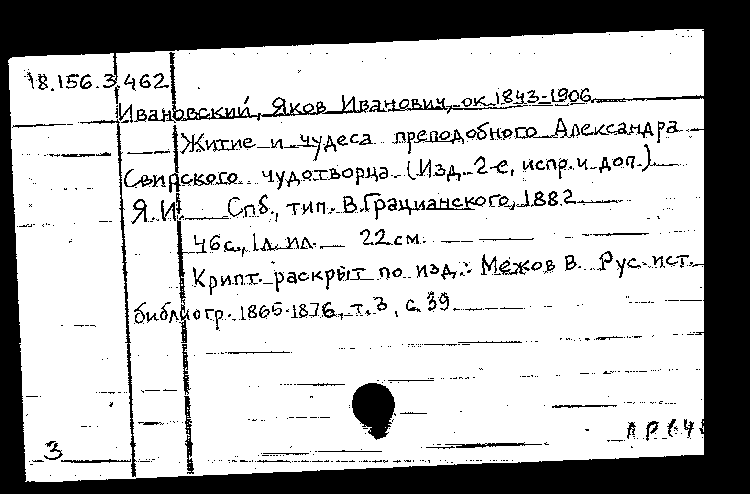 18.156.3.462
Ивановский, Яков Иванович, ок. 1843-1906.
Житие и чудеса преподобного Александра
Свирского чудотворца. (Изд. 2-е, испр. и доп.)
Я. И. Спб., тип. В. Грацианского, 1882.
46 с., 1 л. ил. 22 см.
Крипт. раскрыт по изд.: Межов В. Рус. ист.
библиогр. 1865-1876, т. 3, с. 39
3